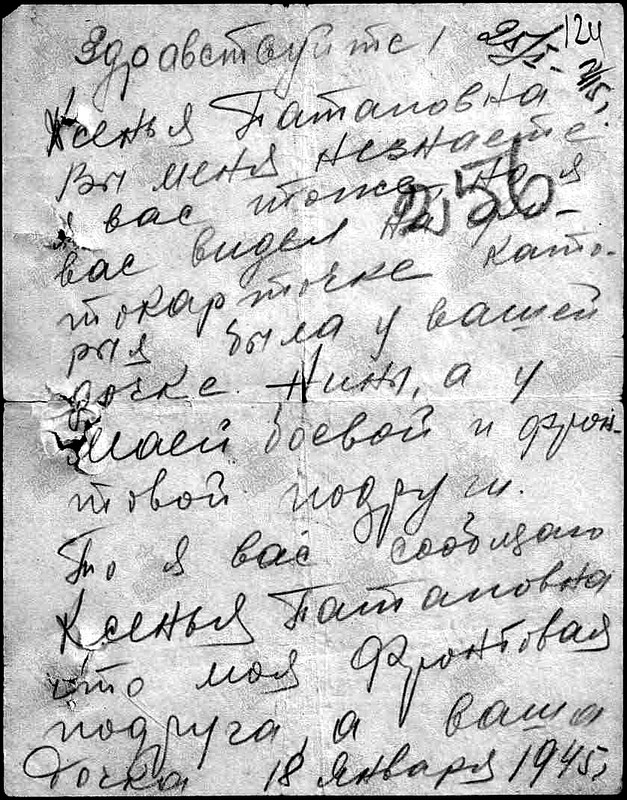 Здравствуйте! 25/I- 124
Ксенья Патаповна
Вы меня незнаете
я вас тоже, но я
256
вас видел на фо-
токарточке като-
рыя была у вашей
дочке Нины, а у
маей боевой и фрон-
товой подруги.
То я вас сообщаю
Ксенья Патаповна
что моя Фронтовая
подруга, а ваша
дочка 18 января 1945г